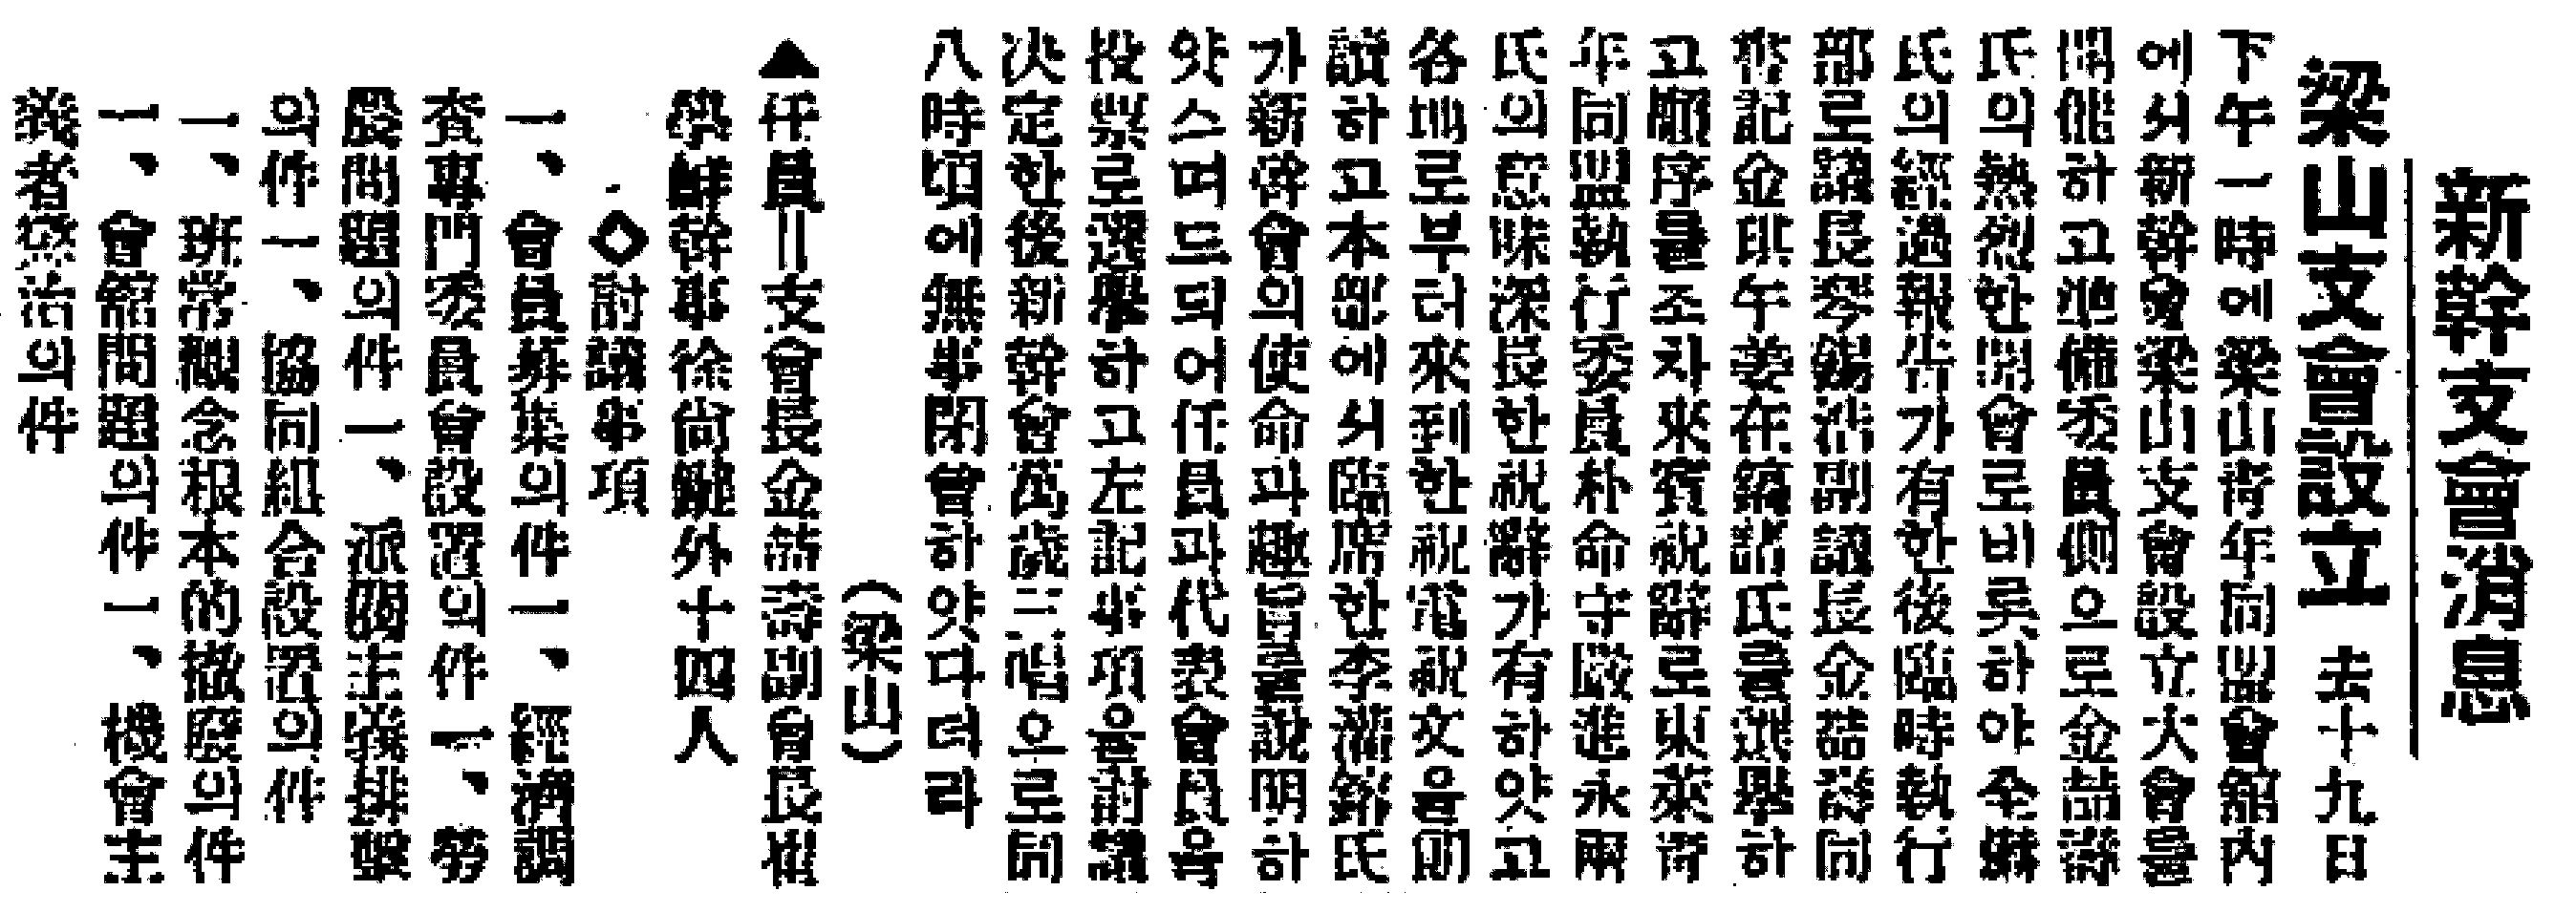 新幹支會消息
梁山支會設立 去十九日
下午一時에梁山靑年同盟會舘內
에서新幹會梁山支會設立大會를
開催하고準備委員側으로金喆壽
氏의熱烈한開會로비롯하야全爀
氏의經過報告가有한後臨時執行
部로議長琴錫浩副議長金喆壽同
書記金琪午姜在鎬諸氏를選擧하
고順序를조차來賓祝辭로東萊靑
年同盟執行委員朴命守嚴進永兩
氏의意味深長한祝辭가有하얏고
各地로부터來到한祝電祝文을朗
讀하고本部에서臨席한李灌鎔氏
가新幹會의使命과趣旨를說明하
얏스며드되어任員과代表會員을
投票로選擧하고左記事項을討議
決定한後新幹會萬歲三唱으로同
八時頃에無事閉會하얏다더라
(梁山)
▲任員＝支會長金喆壽副會長崔
學鮮幹事徐尙鍵外十四人
◇討議事項
一、會員募集의件一、經濟調
査專門委員會設置의件一、勞
農問題의件一、派閥主義排擊
의件一、協同組合設置의件
一、班常觀念根本的撤廢의件
一、會舘問題의件一、機會主
義者懲治의件